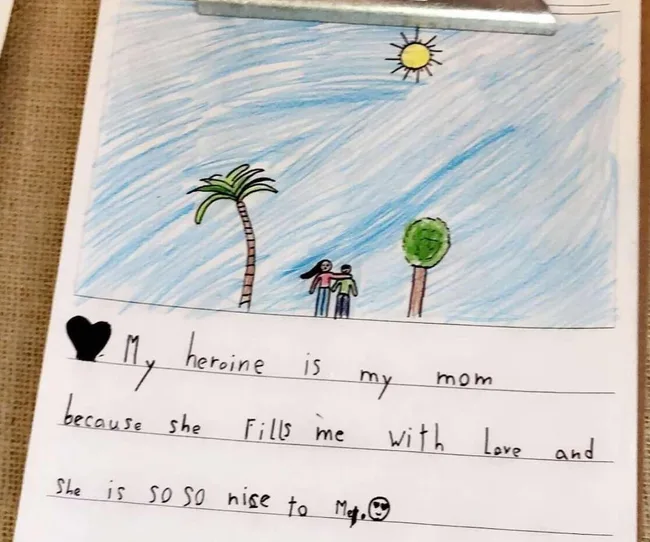 My heroine is my mom
because she Fills me with Love and
She is so so nise to Me.